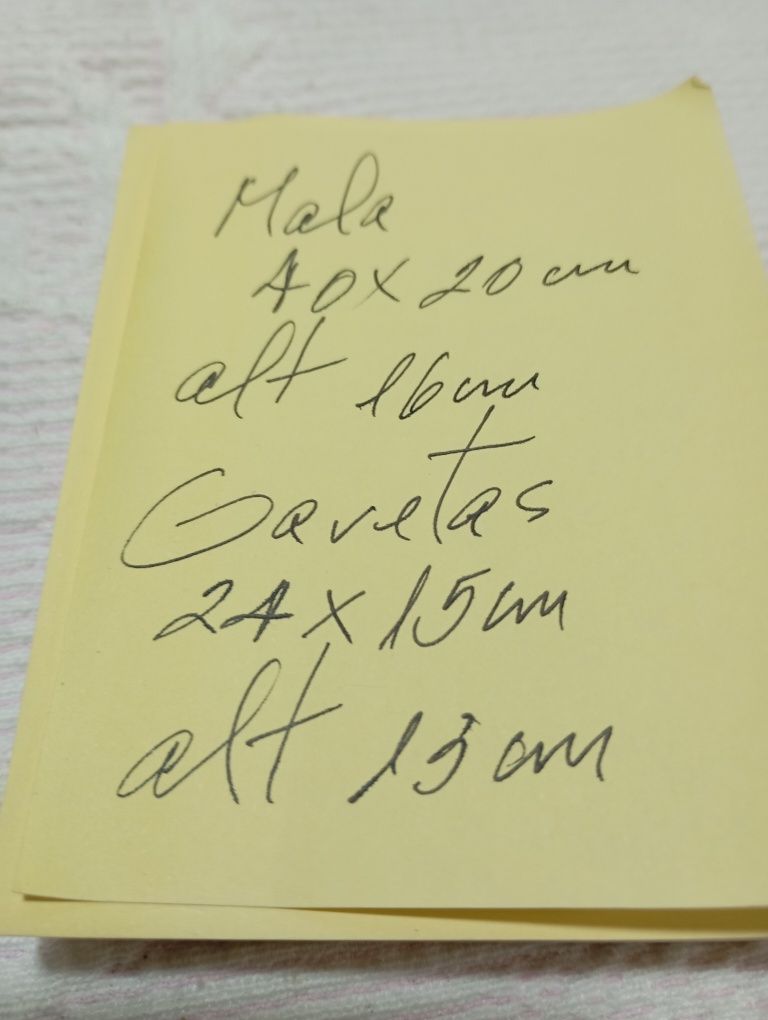 Mala
40x20cm
alt 16cm
Gavetas
24x15cm
alt 13cm